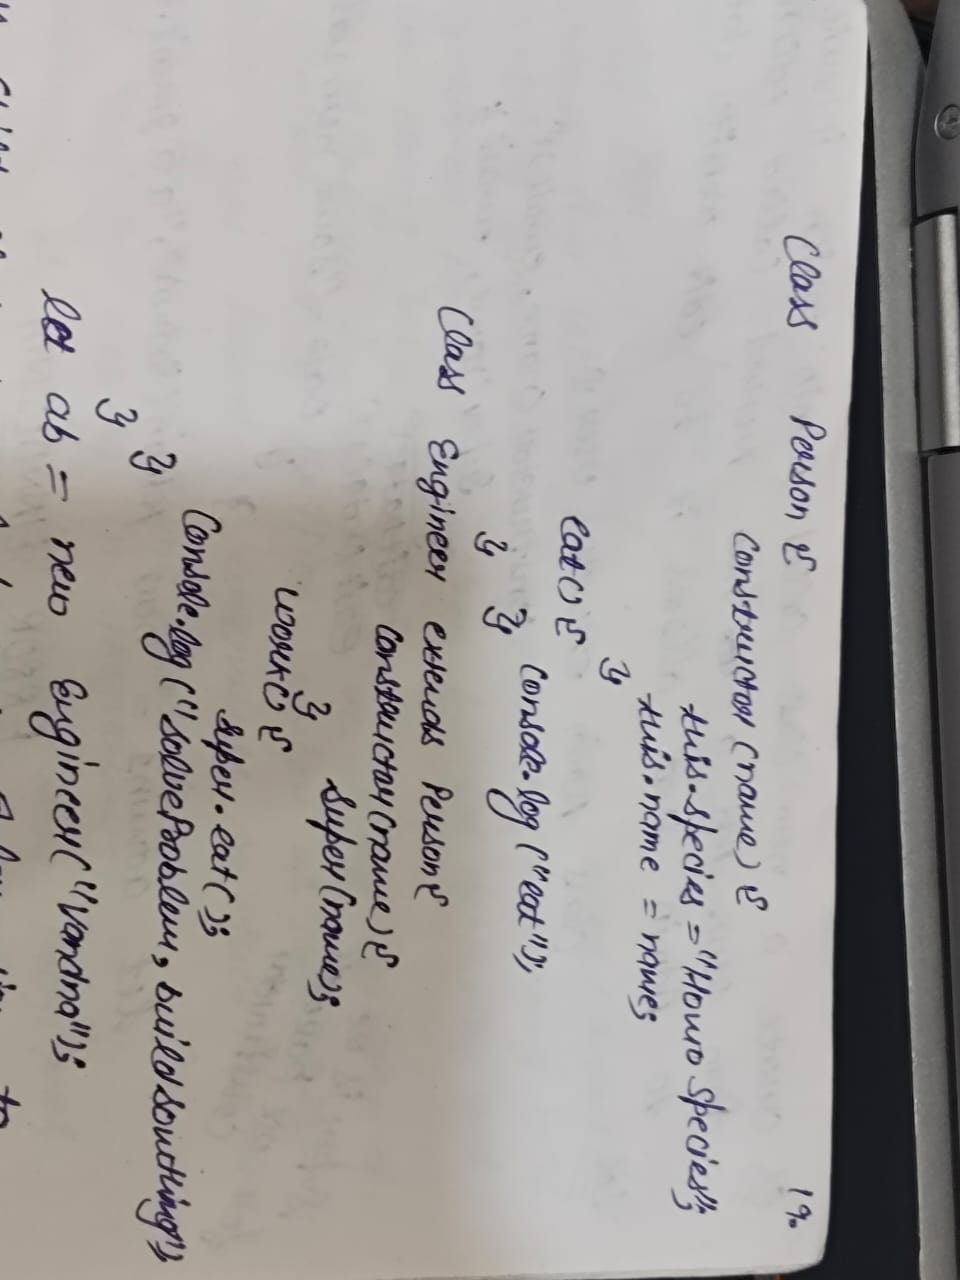 Class Person {
19.
constructor (name) {
this.species = "Homo Species";
this.name = name;
}
eat() {
console.log ("eat");
} }
Class Engineer extends Person {
constructor (name) {
super (name);
}
work() {
super.eat();
Console.log ("solveProblem, build
}
}
let ab = new Engineer ("Vandna");